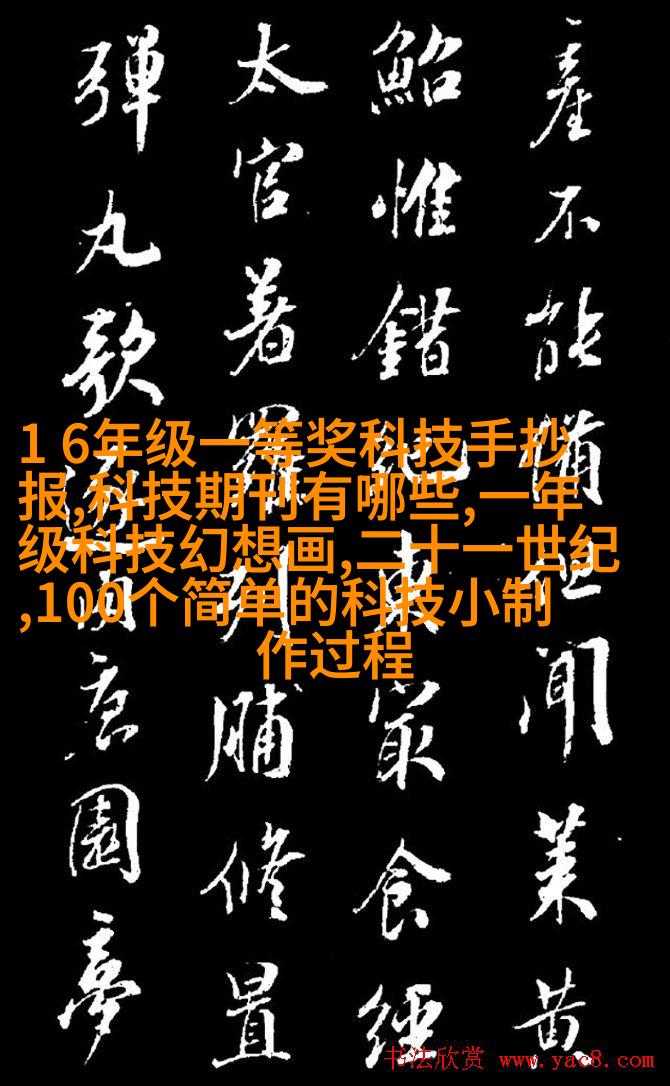 產不能備但聞菜黄
鮐惟錯東食經
太官著羅列脯修置
彈丸歌園夢
1 6年级一等奖科技手抄
报,科技期刊有哪些,一年
级科技幻想画,二十一世纪
,100个简单的科技小制
作过程
书法欣赏 www.yac8.com